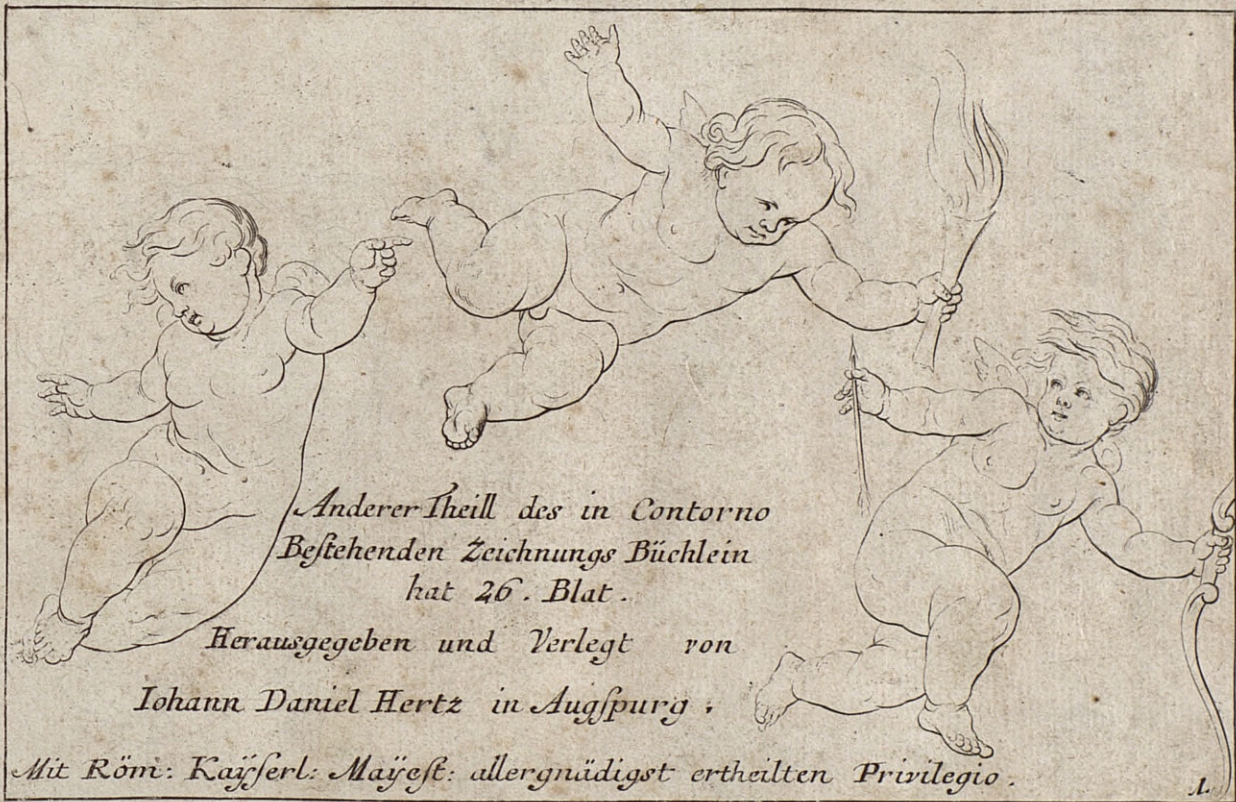 Anderer Theill des in Contorno
Beſtehenden Zeichnungs Büchlein
hat 26. Blat.
Herausgegeben und Verlegt von
Iohann Daniel Hertz in Augſpurg.
Mit Röm: Kaÿſerl: Maÿeſt: allergnädigst ertheilten Privilegio.
1.